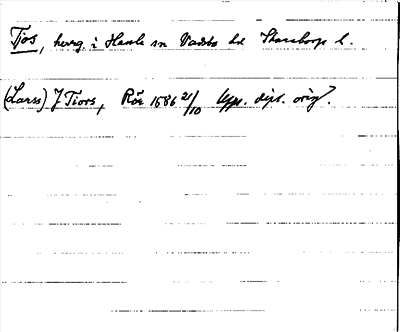 Tjos, herrg. i Hassle sn Vadsbo hd Skaraborgs l.
(Larss) J Tiors, Rör 1586 21/10 Upps. dipl. orig.